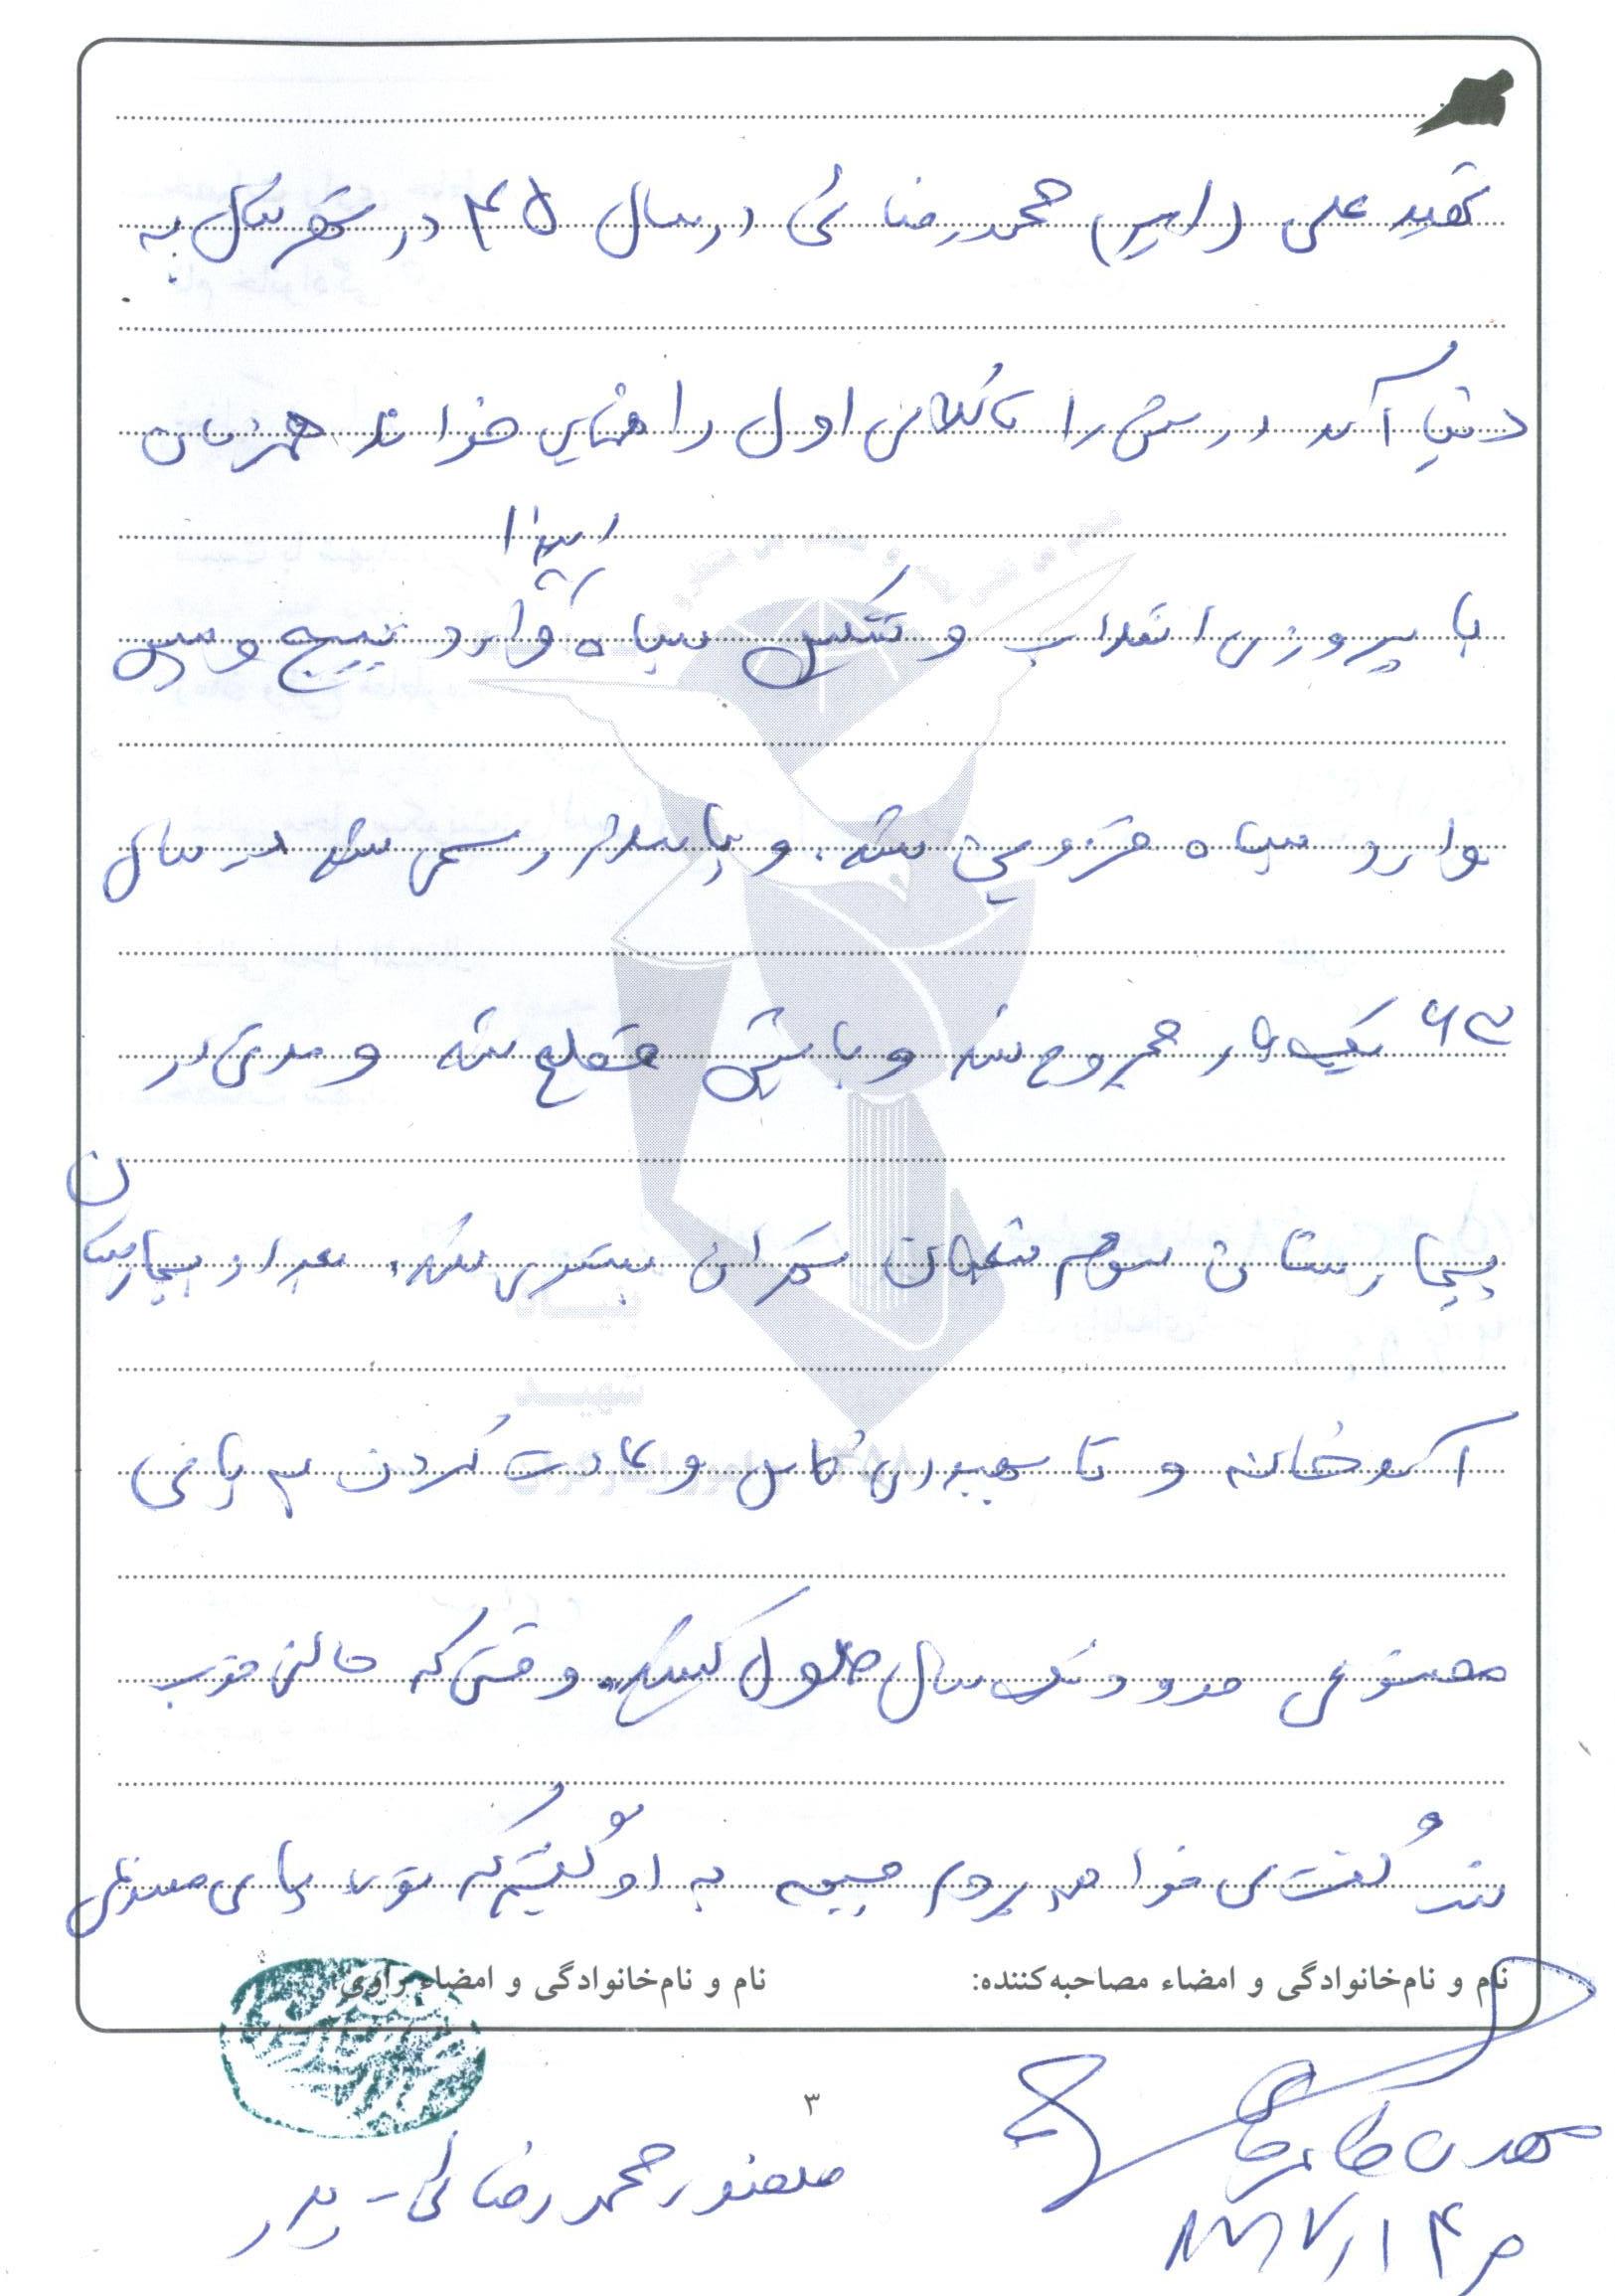 شهید علی (امیر) محمدرضائی در سال ۴۵ در شهر شال به
دنیا آمد درسش را تا کلاس اول راهنمایی خواند همزمان
با پیروزی انقلاب و تشکیل سپاه ابتدا وارد بسیج و سپس
وارد سپاه قزوین شد. و پاسدار رسمی شد در سال
۶۳ یکبار مجروح شد و پایش قطع شد و مدتی در
بیمارستان سوم شعبان تهران بستری شد. بعد از بیمارستان
آمد خانه و تا بهبودی کامل و عادت کردن به پای
مصنوعی حدود یک سال طول کشید. وقتی که حالش خوب
شد گفت می خواهم بروم جبهه به او گفتیم که تو با پای مصنوعی
نام و نام‌خانوادگی و امضاء مصاحبه‌کننده:
نام و نام‌خانوادگی و امضاء راوی:
۳
منصور محمدرضائی - پدر